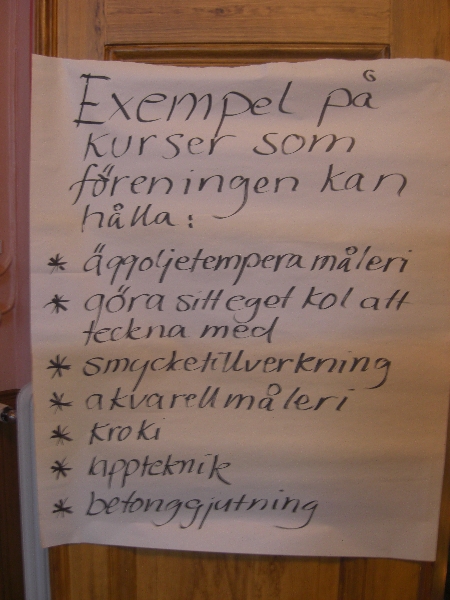 Exempel på
kurser som
föreningen kan
hålla:
* äggoljetempera måleri
* göra sitt eget kol att
teckna med
* smycketillverkning
* akvarellmåleri
* kroki
* lappteknik
* betonggjutning